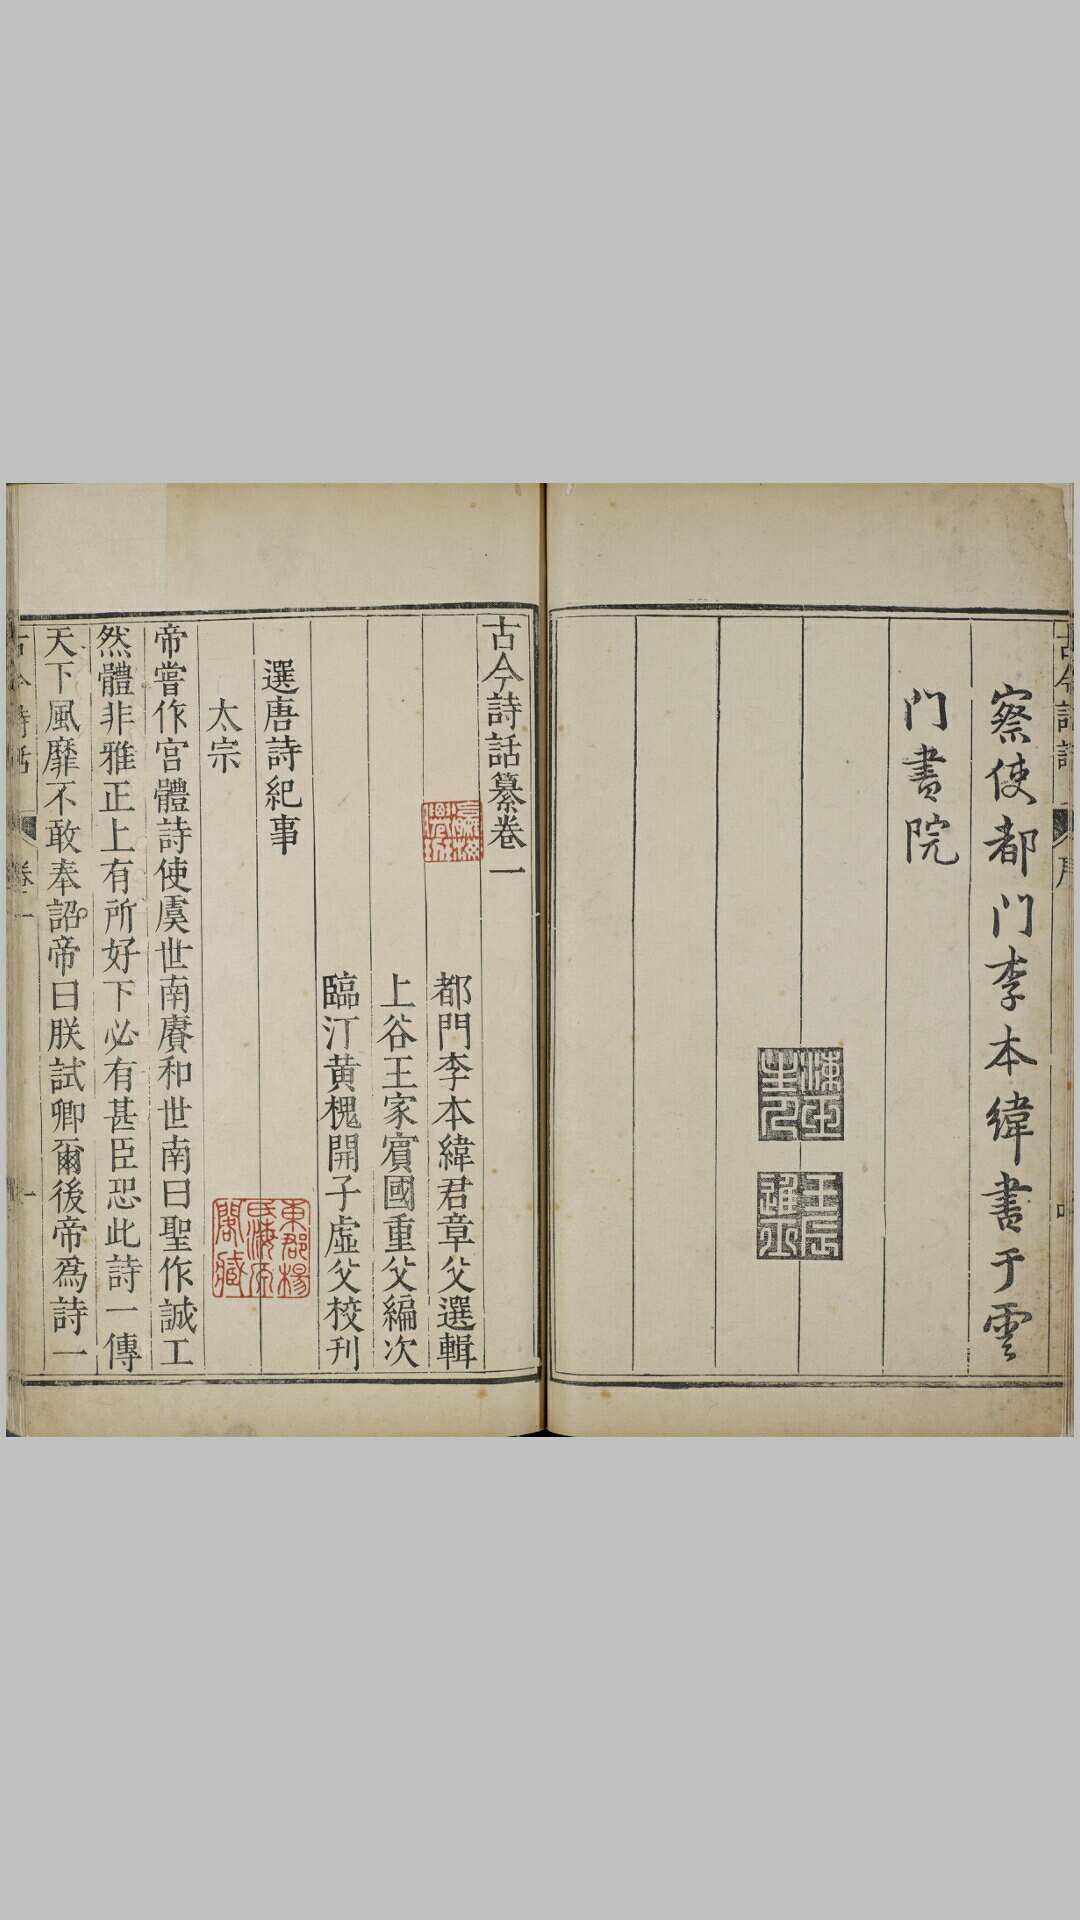 察使都门李本緯書于雲
门書院
古今詩話纂卷一
都門李本緯君章父選輯
上谷王家賓國重父編次
臨汀黃槐開子虛父校刊
選唐詩紀事
太宗
帝嘗作宫體詩使虞世南賡和世南曰聖作誠工
然體非雅正上有所好下必有甚臣恐此詩一傳
天下風靡不敢奉詔帝曰朕試卿爾後帝爲詩一
東郡楊氏海源閣藏